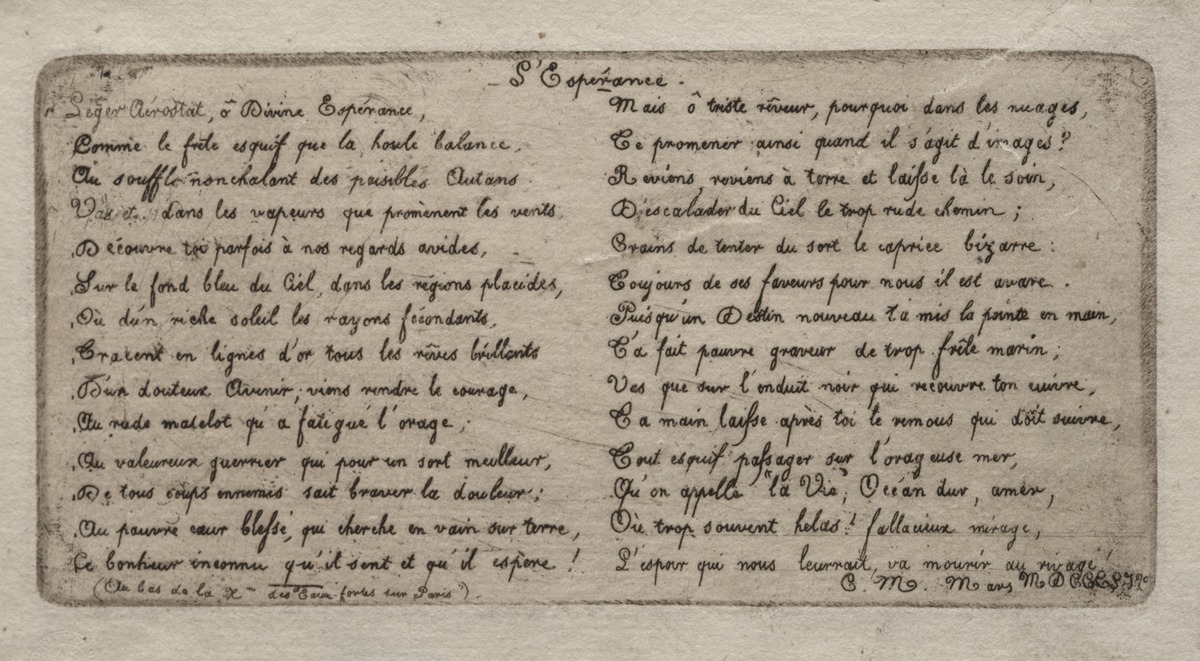 L'Espérance.
Léger Aérostat, ô Divine Espérance,
Comme le frêle esquif que la houle balance,
Au souffle nonchalant des paisibles Autans
Vas et dans les vapeurs que promènent les vents
Découvre toi parfois à nos regards avides,
Sur le fond bleu du Ciel, dans les régions placides,
Où d'un riche soleil les rayons fécondants,
Tracent en lignes d'or tous les rêves brillants
D'un douteux Avenir; viens rendre le courage,
Au rude matelot qu'a fatigué l'orage;
Au valeureux guerrier qui pour un sort meilleur,
De tous coups ennemis sait braver la douleur;
Au pauvre cœur blessé, qui cherche en vain sur terre,
Ce bonheur inconnu qu'il sent et qu'il espère!
(Au bas de la Xme des "Eaux-fortes sur Paris").
Mais ô triste rêveur, pourquoi dans les nuages,
Te promener ainsi quand il s'agit d'images?
Reviens, reviens à terre et laisse là le soin,
D'escalader du Ciel le trop rude chemin;
Crains de tenter du sort le caprice bizarre:
Toujours de ses faveurs pour nous il est avare.
Puisqu'un Destin nouveau t'a mis la pointe en main,
T'a fait pauvre graveur de trop frêle marin;
Vas que sur l'enduit noir qui recouvre ton cuivre,
Ta main laisse après toi le remous qui doit suivre,
Tout esquif passager sur l'orageuse mer,
Qu'on appelle "la Vie", Océan dur, amer,
Où trop souvent helas! fallacieux mirage,
L'espoir qui nous leurrait, va mourir au rivage!
C. M. Mars